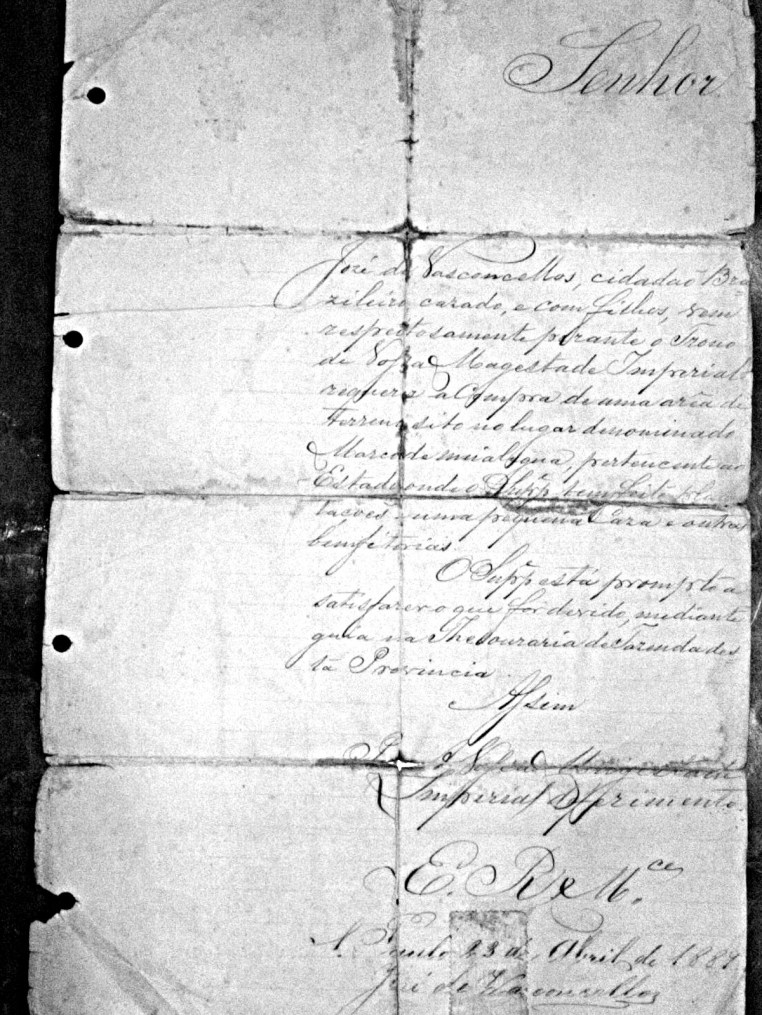 Senhor
José de Vasconcellos, cidadão Bra
zileiro cazado, e com filhos, vem
respeitosamente perante o Trono
de Vossa Magestade Imperial
requerer a Compra de uma aria de
terreno sito no lugar denominado
Marco de meia legua, pertencente ao
Estado onde o Suppe tem feito plan
tacoes uma pequena Caza e outras
bemfeitorias
O Suppe está prompto a
satisfazer o que for devido, mediante
guia na Thesouraria de Fazenda des
ta Provincia
Assim
Vossa Magestade
Imperial Defferimento.
E. R. Mce
S. Paulo 23 de Abril de 1889
José de Vasconcellos